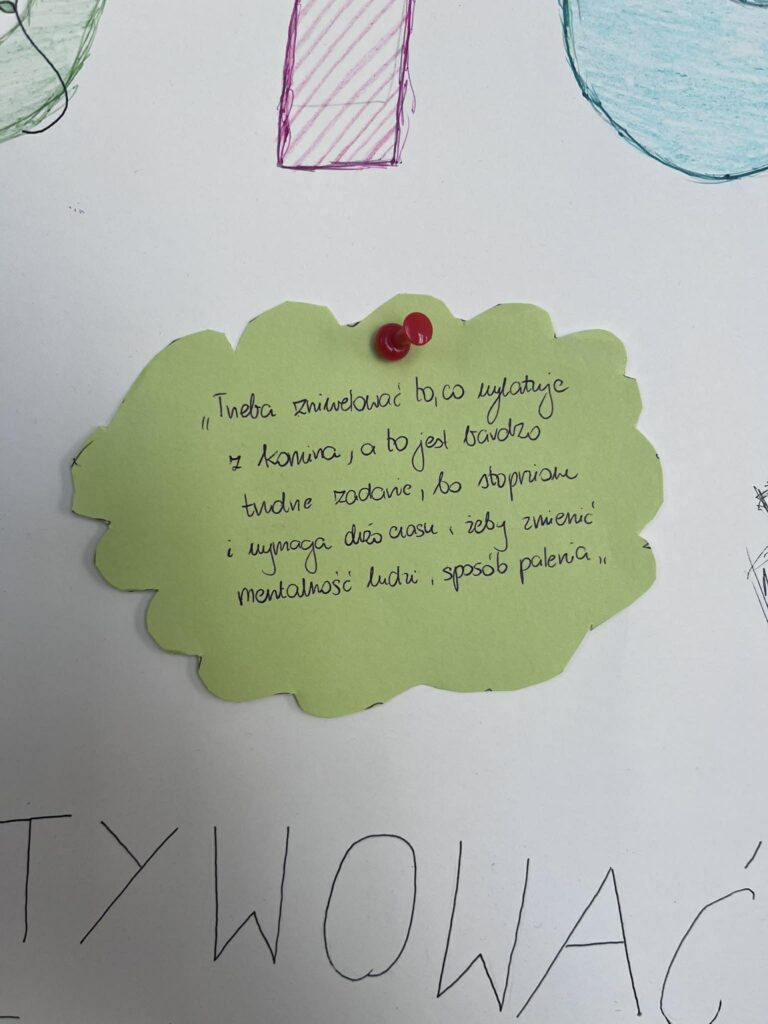 „Trzeba zniwelować to, co wylatuje
z komina, a to jest bardzo
trudne zadanie, bo stopniowe
i wymaga dużo czasu, żeby zmienić
mentalność ludzi, sposób palenia„
TYWOWAĆ